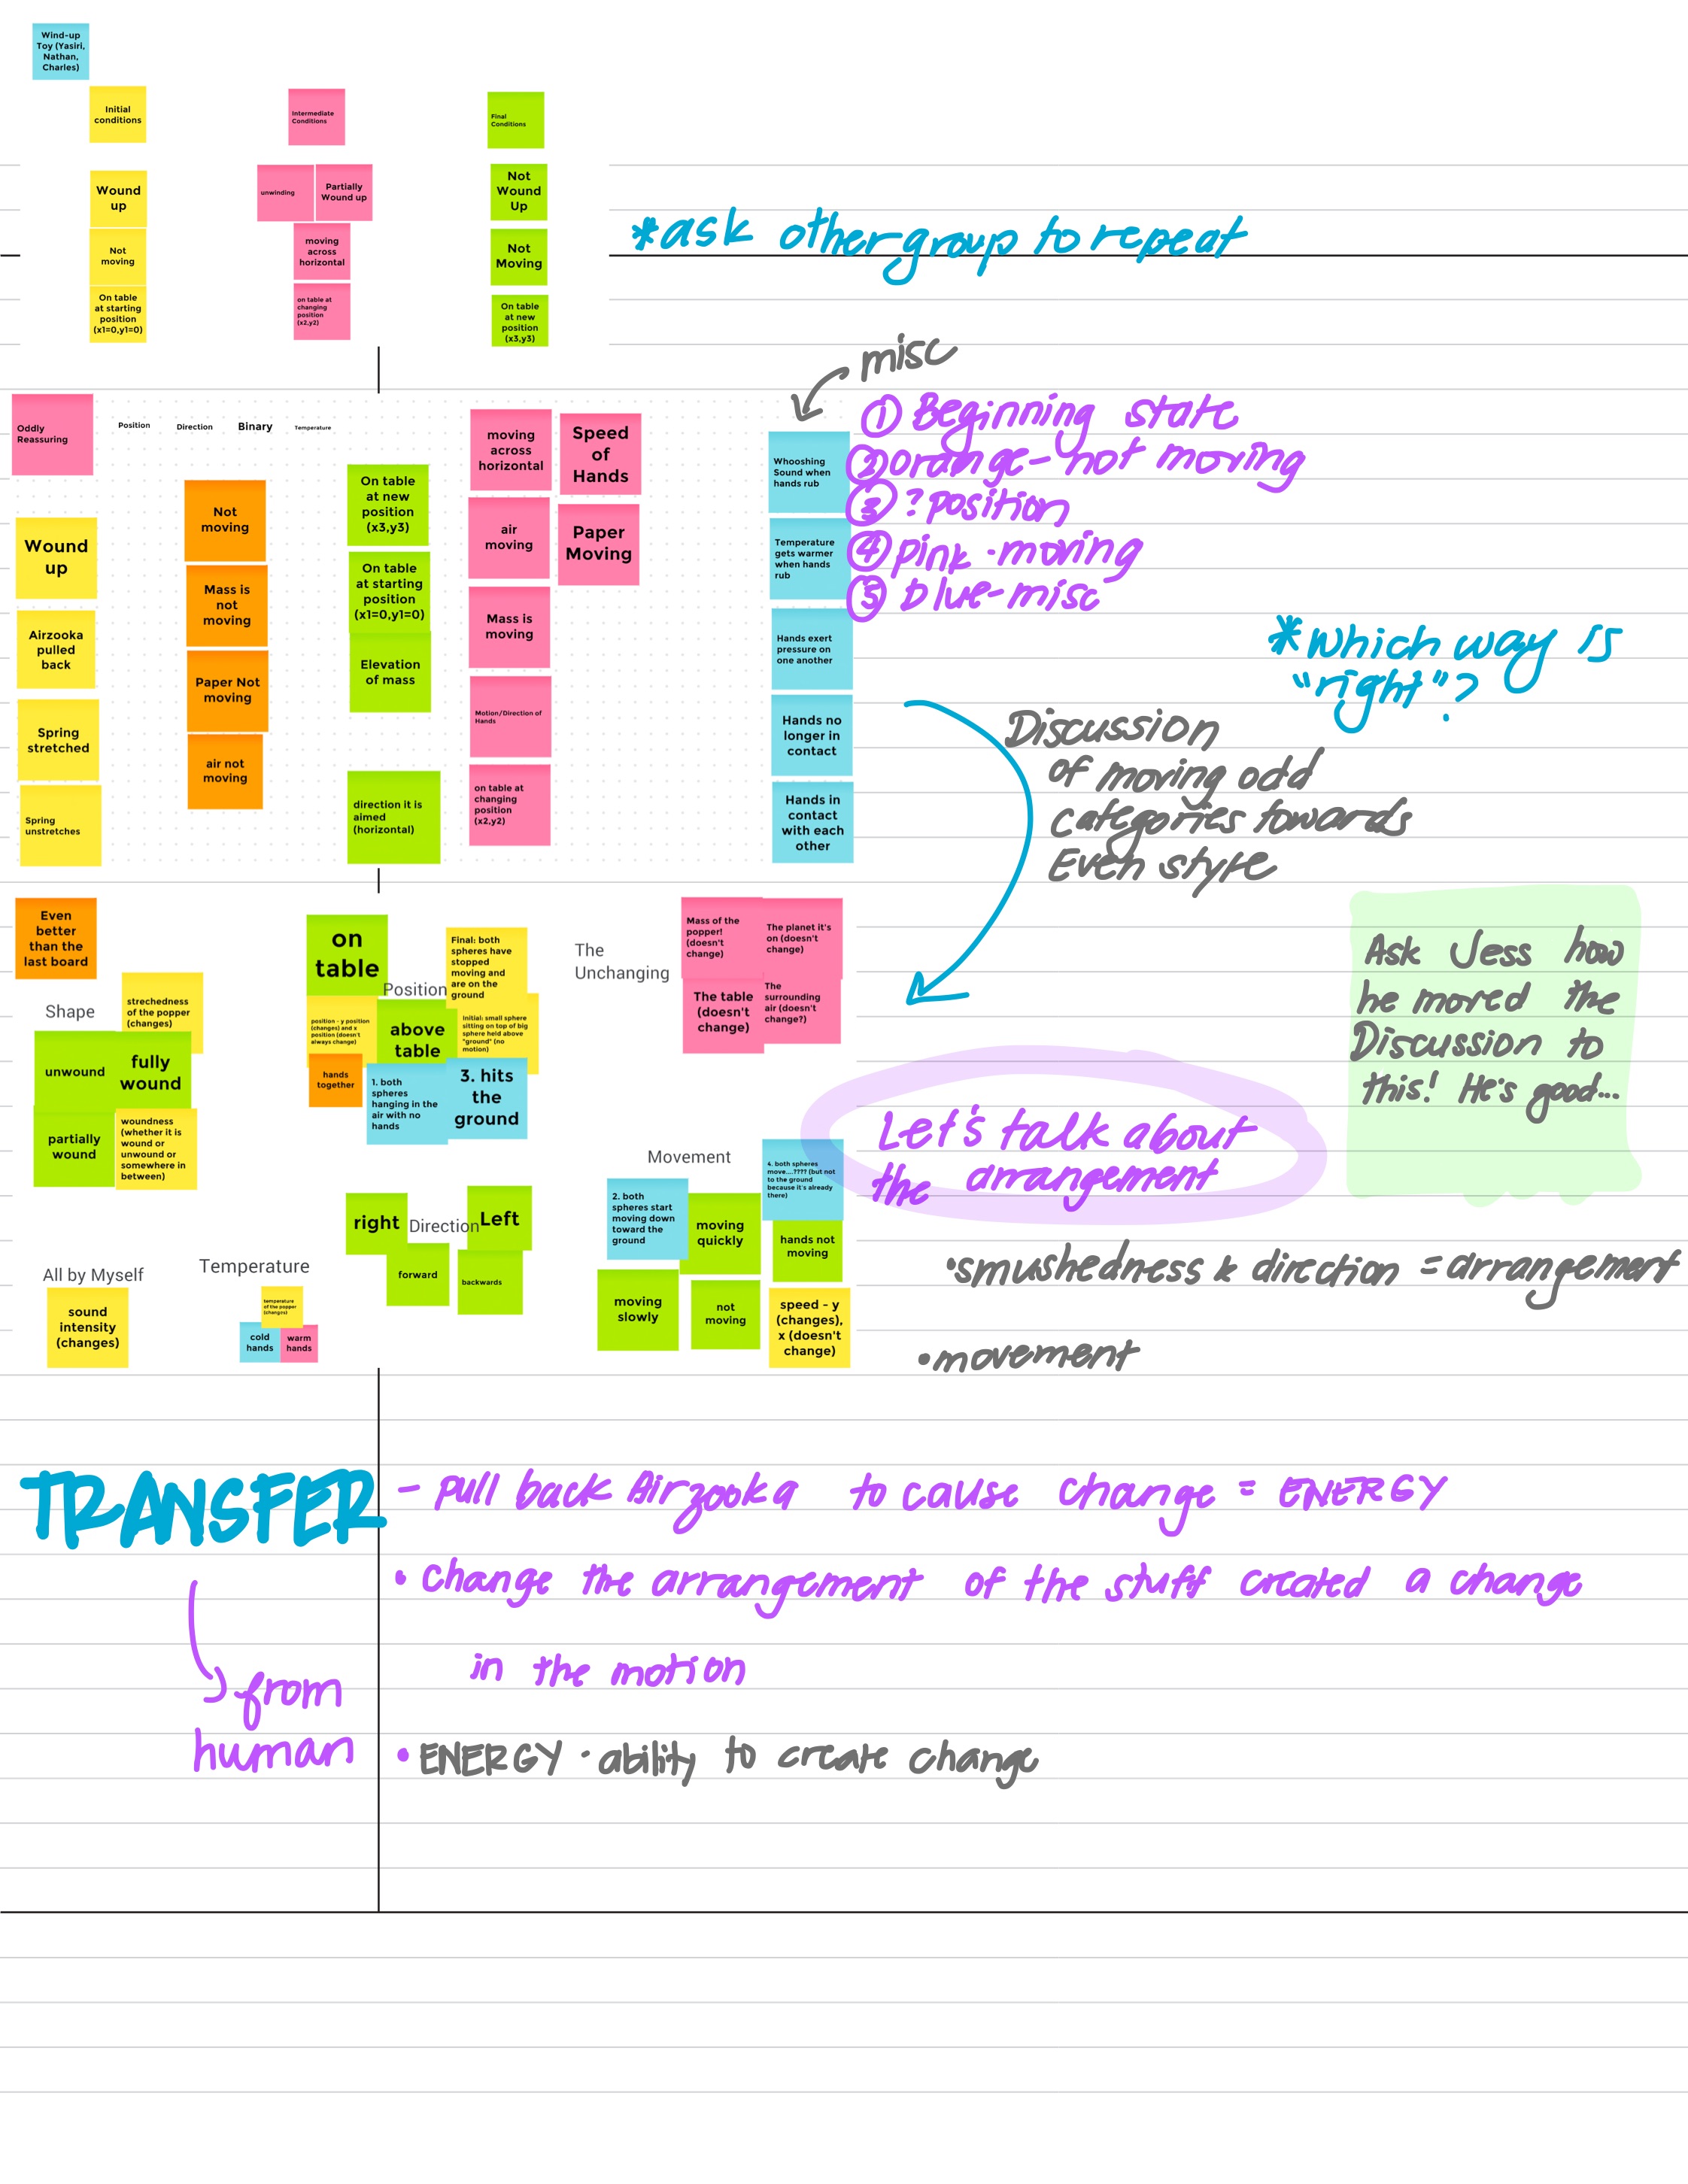 Wind-up
Toy (Yasiri,
Nathan,
Charles)
Initial
conditions
Intermediate
Conditions
Final
Conditions
Wound
up
unwinding
Partially
Wound up
Not
Wound
Up
Not
moving
moving
across
horizontal
Not
Moving
On table
at starting
position
(x1=0,y1=0)
on table at
changing
position
(x2,y2)
On table
at new
position
(x3,y3)
*ask other group to repeat
misc
① Beginning state
② orange - not moving
③ ? position
④ pink - moving
⑤ blue - misc
Oddly
Reassuring
Position
Direction
Binary
Temperature
Wound
up
Airzooka
pulled
back
Spring
stretched
Spring
unstretches
Not
moving
Mass is
not
moving
Paper Not
moving
air not
moving
On table
at new
position
(x3,y3)
On table
at starting
position
(x1=0,y1=0)
Elevation
of mass
direction it is
aimed
(horizontal)
moving
across
horizontal
air
moving
Mass is
moving
Motion/Direction of
Hands
on table at
changing
position
(x2,y2)
Speed
of
Hands
Paper
Moving
Whooshing
Sound when
hands rub
Temperature
gets warmer
when hands
rub
Hands exert
pressure on
one another
Hands no
longer in
contact
Hands in
contact
with each
other
*Which way is
"right"?
Discussion
of moving odd
categories towards
Even style
Even
better
than the
last board
Shape
strechedness
of the popper
(changes)
unwound
fully
wound
partially
wound
woundness
(whether it is
wound or
unwound or
somewhere in
between)
on
table
Position
Final: both
spheres have
stopped
moving and
are on the
ground
position - y position
(changes) and x
position (doesn't
always change)
above
table
Initial: small sphere
sitting on top of big
sphere held above
"ground" (no
motion)
hands
together
1. both
spheres
hanging in the
air with no
hands
3. hits
the
ground
The
Unchanging
Mass of the
popper!
(doesn't
change)
The planet it's
on (doesn't
change)
The table
(doesn't
change)
The
surrounding
air (doesn't
change?)
Ask Jess how
he moved the
Discussion to
this! He's good...
Let's talk about
the arrangement
Movement
2. both
spheres start
moving down
toward the
ground
moving
quickly
4. both spheres
move....???? (but not
to the ground
because it's already
there)
hands not
moving
moving
slowly
not
moving
speed - y
(changes),
x (doesn't
change)
right
Direction
Left
forward
backwards
All by Myself
sound
intensity
(changes)
Temperature
temperature
of the popper
(changes)
cold
hands
warm
hands
•smushedness & direction = arrangement
•movement
TRANSFER
from
human
- pull back Airzooka to cause change = ENERGY
• change the arrangement of the stuff created a change
in the motion
• ENERGY - ability to create change